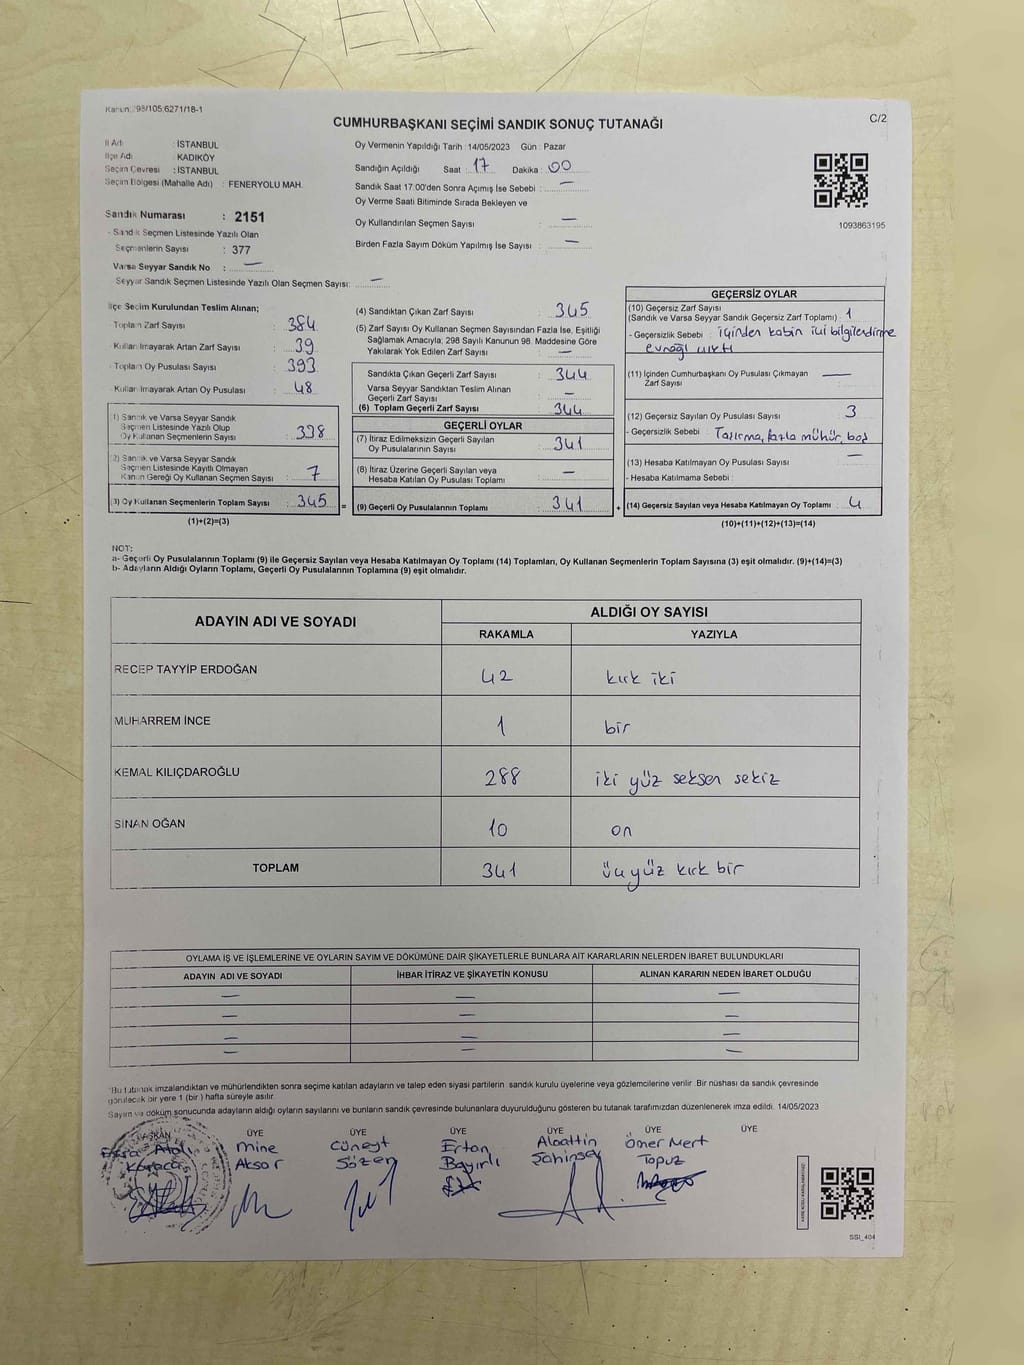 Kanun: 98/105,6271/18-1
C/2
CUMHURBAŞKANI SEÇİMİ SANDIK SONUÇ TUTANAĞI
İl Adı : İSTANBUL
İlçe Adı : KADIKÖY
Seçim Çevresi : İSTANBUL
Seçim Bölgesi (Mahalle Adı) : FENERYOLU MAH.
Sandık Numarası : 2151
- Sandık Seçmen Listesinde Yazılı Olan
Seçmenlerin Sayısı : 377
Varsa Seyyar Sandık No : —
Seyyar Sandık Seçmen Listesinde Yazılı Olan Seçmen Sayısı: —
Oy Vermenin Yapıldığı Tarih : 14/05/2023 Gün : Pazar
Sandığın Açıldığı Saat : 17 Dakika : 00
Sandık Saat 17:00'den Sonra Açımış İse Sebebi : —
Oy Verme Saati Bitiminde Sırada Bekleyen ve
Oy Kullandırılan Seçmen Sayısı : —
Birden Fazla Sayım Döküm Yapılmış İse Sayısı : —
1093863195
İlçe Seçim Kurulundan Teslim Alınan;
- Toplam Zarf Sayısı : 384
- Kullanılmayarak Artan Zarf Sayısı : 39
- Toplam Oy Pusulası Sayısı : 393
- Kullanılmayarak Artan Oy Pusulası : 48
(1) Sandık ve Varsa Seyyar Sandık
Seçmen Listesinde Yazılı Olup
Oy Kullanan Seçmenlerin Sayısı : 338
(2) Sandık ve Varsa Seyyar Sandık
Seçmen Listesinde Kayıtlı Olmayan
Kanun Gereği Oy Kullanan Seçmen Sayısı : 7
(3) Oy Kullanan Seçmenlerin Toplam Sayısı : 345 =
(1)+(2)=(3)
(4) Sandıktan Çıkan Zarf Sayısı : 345
(5) Zarf Sayısı Oy Kullanan Seçmen Sayısından Fazla İse, Eşitliği
Sağlamak Amacıyla; 298 Sayılı Kanunun 98. Maddesine Göre
Yakılarak Yok Edilen Zarf Sayısı : —
Sandıkta Çıkan Geçerli Zarf Sayısı : 344
Varsa Seyyar Sandıktan Teslim Alınan
Geçerli Zarf Sayısı : —
(6) Toplam Geçerli Zarf Sayısı : 344
GEÇERLİ OYLAR
(7) İtiraz Edilmeksizin Geçerli Sayılan
Oy Pusulalarının Sayısı : 341
(8) İtiraz Üzerine Geçerli Sayılan veya
Hesaba Katılan Oy Pusulası Toplamı : —
(9) Geçerli Oy Pusulalarının Toplamı : 341 +
GEÇERSİZ OYLAR
(10) Geçersiz Zarf Sayısı
(Sandık ve Varsa Seyyar Sandık Geçersiz Zarf Toplamı) : 1
- Geçersizlik Sebebi : İçinden kabin içi bilgilendirme
evrağı çıktı
(11) İçinden Cumhurbaşkanı Oy Pusulası Çıkmayan
Zarf Sayısı : —
(12) Geçersiz Sayılan Oy Pusulası Sayısı : 3
- Geçersizlik Sebebi : Taşırma, fazla mühür, boş
(13) Hesaba Katılmayan Oy Pusulası Sayısı : —
- Hesaba Katılmama Sebebi :
(14) Geçersiz Sayılan veya Hesaba Katılmayan Oy Toplamı : 4
(10)+(11)+(12)+(13)=(14)
NOT:
a- Geçerli Oy Pusulalarının Toplamı (9) ile Geçersiz Sayılan veya Hesaba Katılmayan Oy Toplamı (14) Toplamları, Oy Kullanan Seçmenlerin Toplam Sayısına (3) eşit olmalıdır. (9)+(14)=(3)
b- Adayların Aldığı Oyların Toplamı, Geçerli Oy Pusulalarının Toplamına (9) eşit olmalıdır.
ADAYIN ADI VE SOYADI
ALDIĞI OY SAYISI
RAKAMLA YAZIYLA
RECEP TAYYİP ERDOĞAN 42 kırk iki
MUHARREM İNCE 1 bir
KEMAL KILIÇDAROĞLU 288 iki yüz seksen sekiz
SİNAN OĞAN 10 on
TOPLAM 341 üç yüz kırk bir
OYLAMA İŞ VE İŞLEMLERİNE VE OYLARIN SAYIM VE DÖKÜMÜNE DAİR ŞİKAYETLERLE BUNLARA AİT KARARLARIN NELERDEN İBARET BULUNDUKLARI
ADAYIN ADI VE SOYADI İHBAR İTİRAZ VE ŞİKAYETİN KONUSU ALINAN KARARIN NEDEN İBARET OLDUĞU
— — —
— — —
— — —
— — —
*Bu tutanak imzalandıktan ve mühürlendikten sonra seçime katılan adayların ve talep eden siyasi partilerin sandık kurulu üyelerine veya gözlemcilerine verilir. Bir nüshası da sandık çevresinde
görülecek bir yere 1 (bir ) hafta süreyle asılır.
Sayım ve döküm sonucunda adayların aldığı oyların sayılarını ve bunların sandık çevresinde bulunanlara duyurulduğunu gösteren bu tutanak tarafımızdan düzenlenerek imza edildi. 14/05/2023
BAŞKAN ÜYE ÜYE ÜYE ÜYE ÜYE ÜYE
Esra Mine Cüneyt Ertan Alaattin Ömer Mert
Karaca Aksar Sözen Bayırlı Şahinsey Topuz
SSI_404